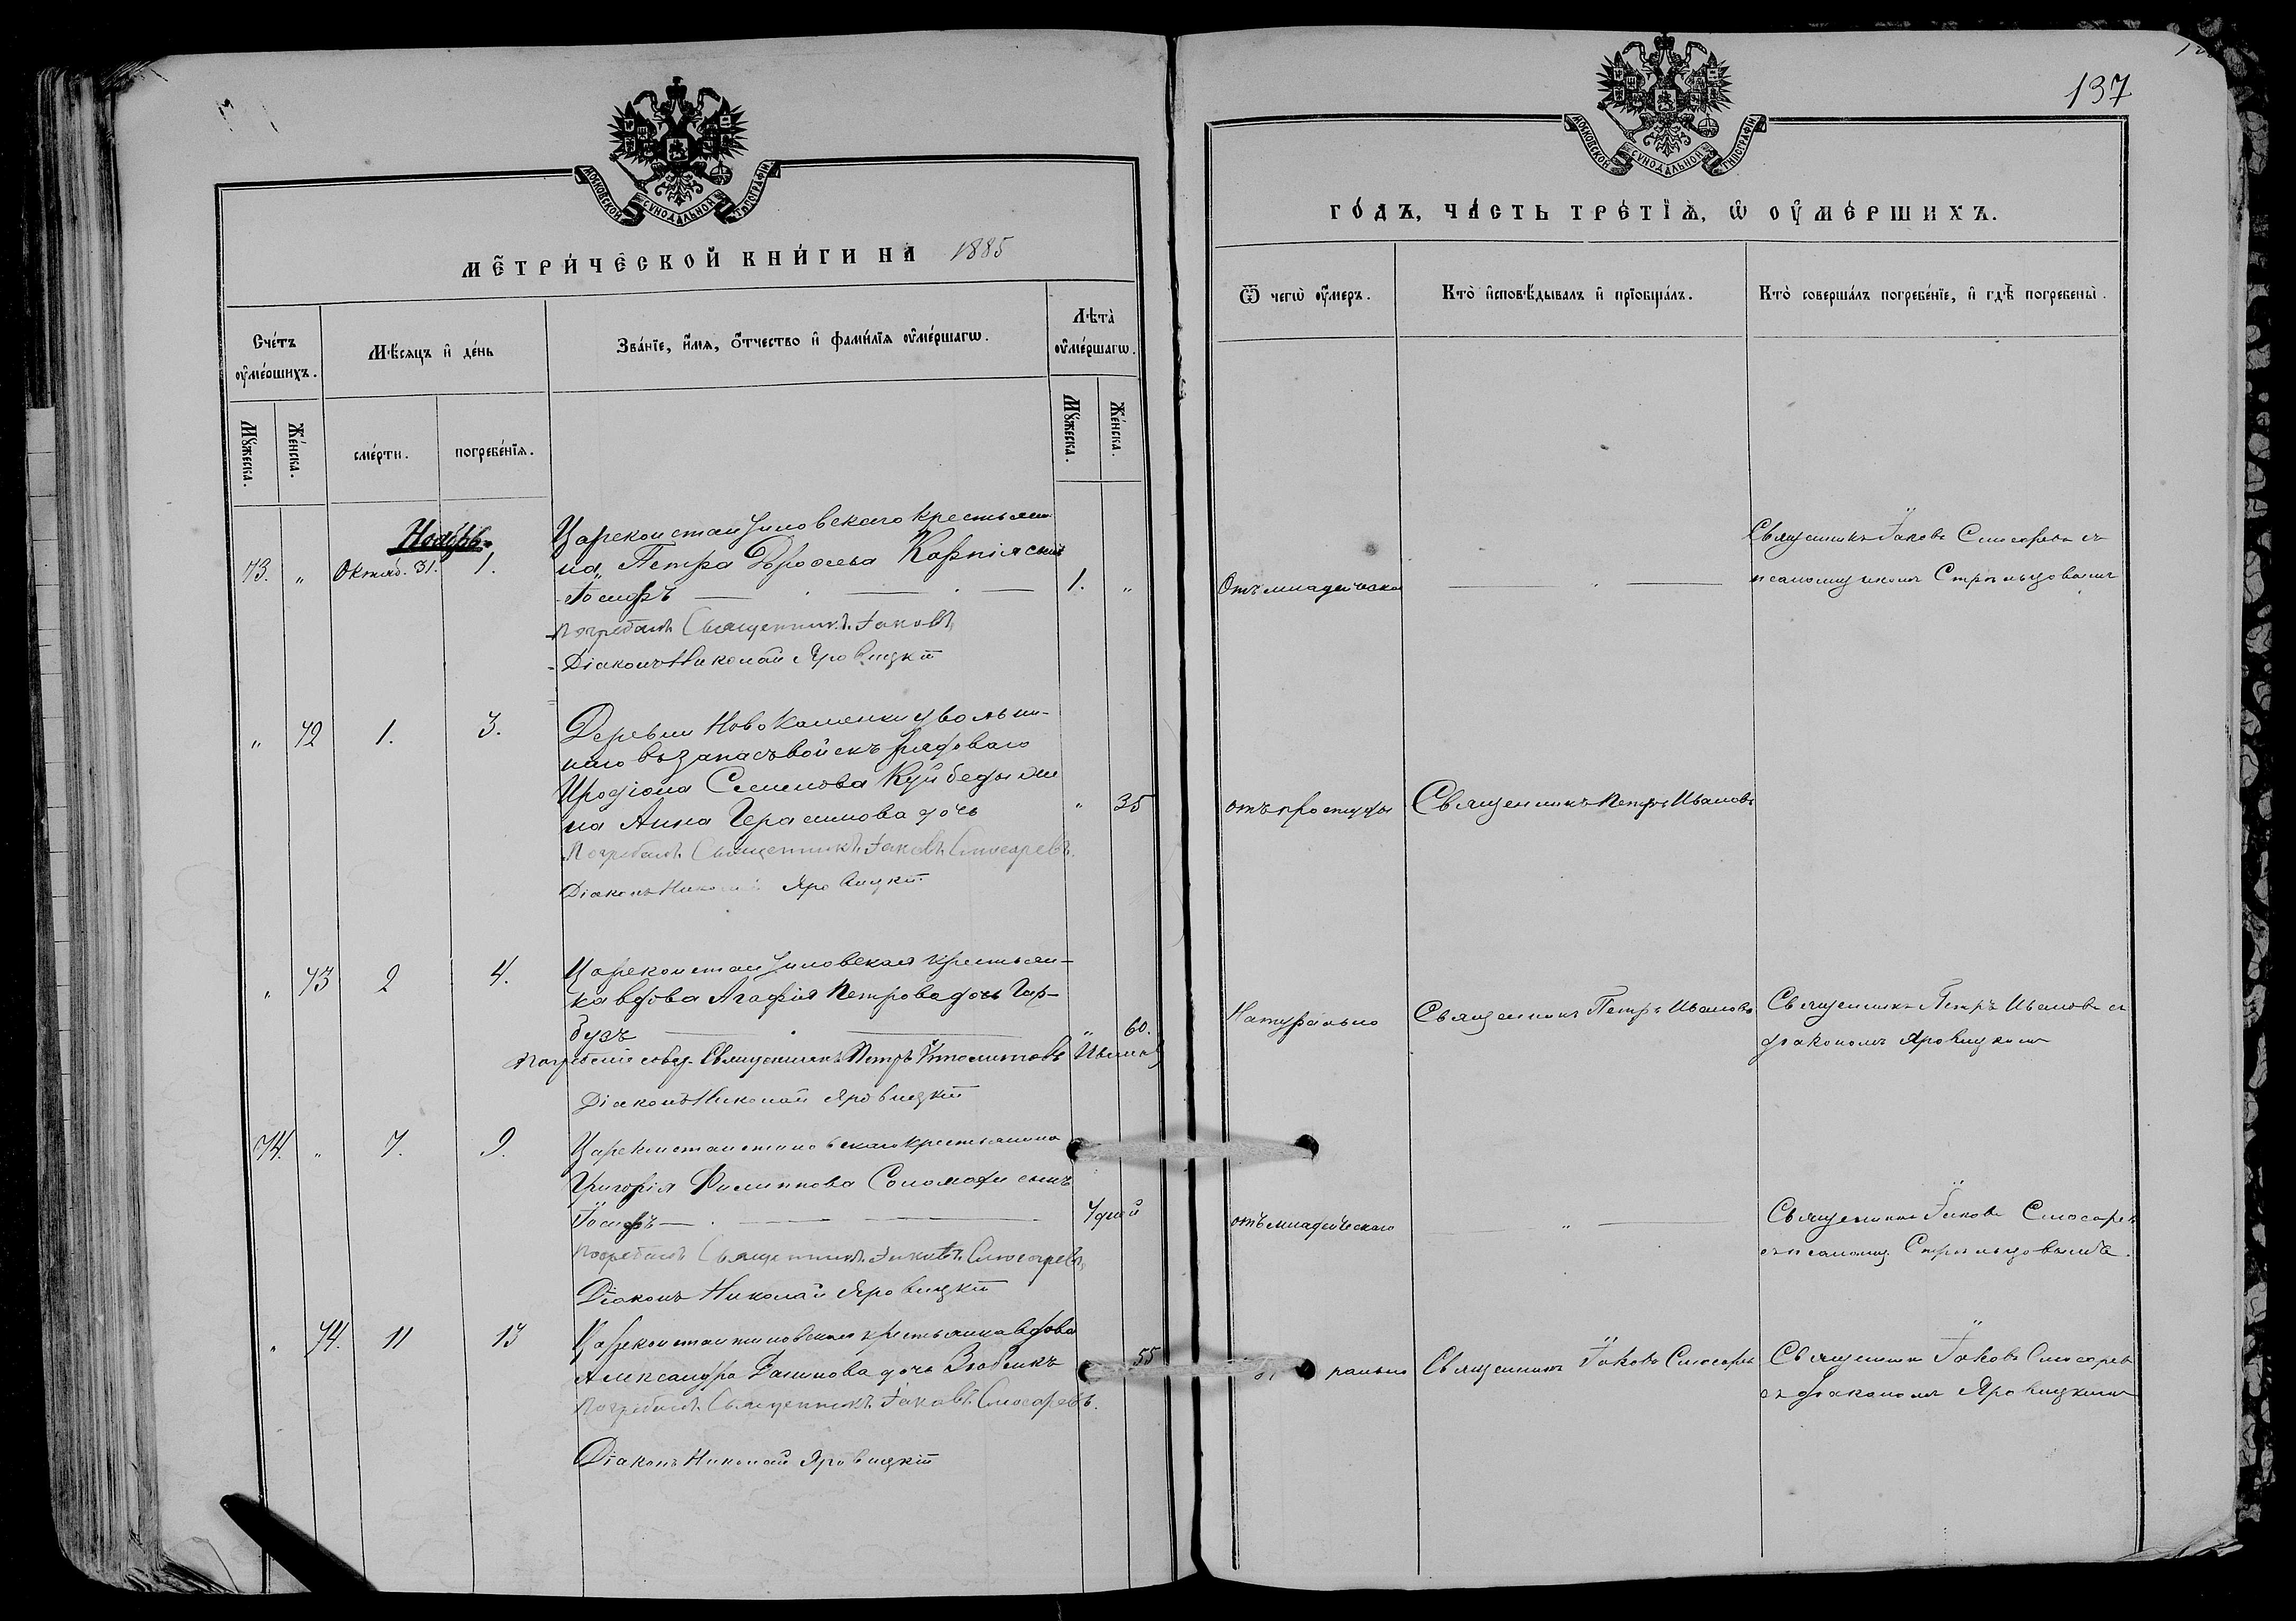 МОСКОВСКОЙ СѴНОДАЛЬНОЙ ТИПОГРАФІИ
МЕТРИ́ЧЕСКОЙ КНИ́ГИ НА 1885
Сче́тъ ᲂу҆ме́ршихъ.
Мѣ́сяцъ и҆ де́нь
Зва́нїе, и҆́мѧ, ѻ҆́тчество и҆ фами́лїѧ ᲂу҆ме́ршагѡ.
Лѣта̀ ᲂу҆ме́ршагѡ.
Мꙋ́жеска.
Же́нска.
сме́рти.
погребе́нїѧ.
Мꙋ́жеска.
Же́нска.
Ноябрь
73. „ Октяб. 31. 1.
Царекостантиновскаго крестьяни
на Петра
Іосифъ 1. „
Погребалъ Священникъ Іаковъ
Діаконъ Николай Яровицкій
„ 72 1. 3.
Деревни Новокаменки уволенн-
наго въ запасъ войскъ рядоваго
Иродіона Семенова Куйбеды же
на Анна Герасимова дочь „ 35
Погребалъ Священникъ Іаковъ Слюсаревъ.
Діаконъ Николай Яровицкій
„ 73 2 4.
Царекостантиновская крестьян-
ка вдова Агафія Петрова дочь Гар-
бузъ „ 60.
Погребеніе сов. Священникъ Петръ Иванов
Діаконъ Николай Яровицкій
74. „ 7. 9.
Царекостантиновскаго крестьянина
Григорія Филиппова Соломахи сынъ
Іосифъ 7 дней
Погребалъ Священникъ Іаковъ Слюсаревъ
Діаконъ Николай Яровицкій
„ 74. 11 13
Царекостантиновская крестьянка вдова
Александра дочь 55
Погребалъ Священникъ Іаковъ Слюсаревъ.
Діаконъ Николай Яровицкій
137
МОСКОВСКОЙ СѴНОДАЛЬНОЙ ТИПОГРАФІИ
ГО́ДЪ, ЧА́СТЬ ТРЕ́ТЇѦ, Ѡ҆ ᲂУ҆МЕ́РШИХЪ.
Ѿ чегѡ̀ ᲂу҆́меръ.
Кто̀ и҆сповѣ́дывалъ и҆ прїобща́лъ.
Кто̀ соверша́лъ погребе́нїе, и҆ гдѣ̀ погребены̀.
Священникъ Іаковъ Слюсаревъ съ
Отъ младенческа „ псаломщикомъ Стрельцовымъ
отъ простуды Священникъ Петръ Ивановъ
Натурально Священникъ Петръ Ивановъ Священникъ Петръ Ивановъ съ
діакономъ Яровицкимъ
отъ младенческаго „ Священникъ Іаковъ Слюсарев
съ псаломщ Стрельцовымъ.
рально Священникъ Іаковъ Слюсарев Священникъ Іаковъ Слюсаревъ
съ діакономъ Яровицкимъ